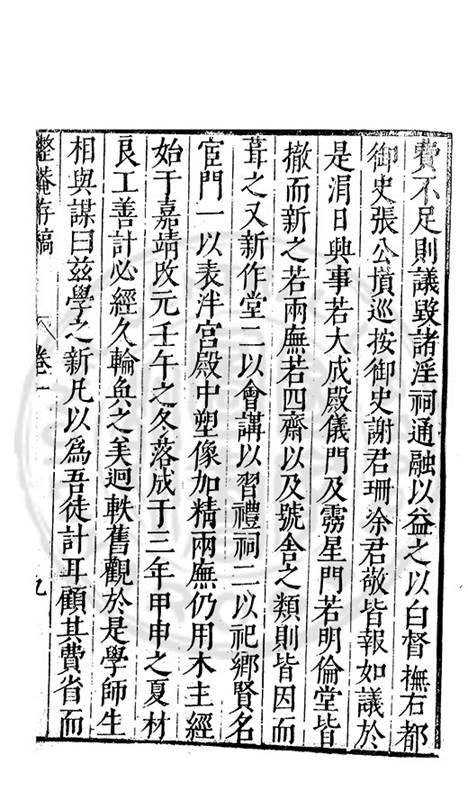 費不足則議毀諸淫祠通融以益之以白督撫右都
御史張公㙮巡按御史謝君珊涂君敬皆報如議於
是涓日興事若大成殿儀門及靈星門若明倫堂皆
撤而新之若兩廡若四齋以及號舍之類則皆因而
葺之又新作堂二以會講以習禮祠二以祀鄉賢名
宦門一以表泮宮殿中塑像加精兩廡仍用木主經
始于嘉靖改元壬午之冬落成于三年甲申之夏材
良工善計必經久輪奐之美迥軼舊觀於是學師生
相與謀曰茲學之新凡以爲吾徒計耳顧其費省而
整菴存稿 卷一 九